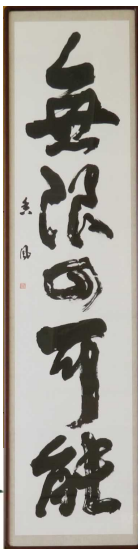 無限の可能